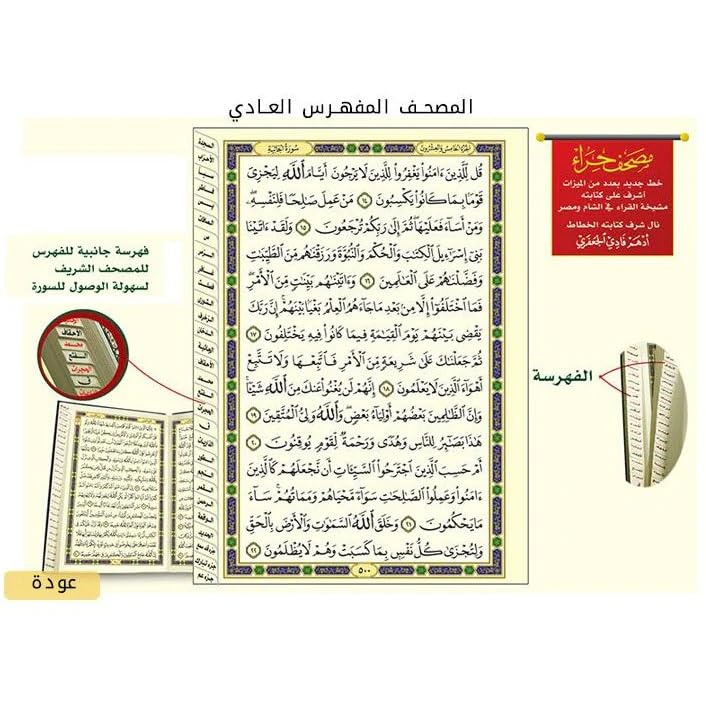 المصحف المفهرس العادي
سورة الجاثية
الجزء الخامس والعشرون
قُل لِّلَّذِينَ ءَامَنُوا۟ يَغْفِرُوا۟ لِلَّذِينَ لَا يَرْجُونَ أَيَّامَ ٱللَّهِ لِيَجْزِىَ
قَوْمًۢا بِمَا كَانُوا۟ يَكْسِبُونَ ١٤ مَنْ عَمِلَ صَـٰلِحًا فَلِنَفْسِهِۦ
وَمَنْ أَسَآءَ فَعَلَيْهَا ثُمَّ إِلَىٰ رَبِّكُمْ تُرْجَعُونَ ١٥ وَلَقَدْ ءَاتَيْنَا
بَنِىٓ إِسْرَٰٓءِيلَ ٱلْكِتَـٰبَ وَٱلْحُكْمَ وَٱلنُّبُوَّةَ وَرَزَقْنَـٰهُم مِّنَ ٱلطَّيِّبَـٰتِ
وَفَضَّلْنَـٰهُمْ عَلَى ٱلْعَـٰلَمِينَ ١٦ وَءَاتَيْنَـٰهُم بَيِّنَـٰتٍ مِّنَ ٱلْأَمْرِ
فَمَا ٱخْتَلَفُوٓا۟ إِلَّا مِنۢ بَعْدِ مَا جَآءَهُمُ ٱلْعِلْمُ بَغْيًۢا بَيْنَهُمْ إِنَّ رَبَّكَ
يَقْضِى بَيْنَهُمْ يَوْمَ ٱلْقِيَـٰمَةِ فِيمَا كَانُوا۟ فِيهِ يَخْتَلِفُونَ ١٧
ثُمَّ جَعَلْنَـٰكَ عَلَىٰ شَرِيعَةٍ مِّنَ ٱلْأَمْرِ فَٱتَّبِعْهَا وَلَا تَتَّبِعْ
أَهْوَآءَ ٱلَّذِينَ لَا يَعْلَمُونَ ١٨ إِنَّهُمْ لَن يُغْنُوا۟ عَنكَ مِنَ ٱللَّهِ شَيْـًٔا
وَإِنَّ ٱلظَّـٰلِمِينَ بَعْضُهُمْ أَوْلِيَآءُ بَعْضٍ وَٱللَّهُ وَلِىُّ ٱلْمُتَّقِينَ ١٩
هَـٰذَا بَصَـٰٓئِرُ لِلنَّاسِ وَهُدًى وَرَحْمَةٌ لِّقَوْمٍ يُوقِنُونَ ٢٠
أَمْ حَسِبَ ٱلَّذِينَ ٱجْتَرَحُوا۟ ٱلسَّيِّـَٔاتِ أَن نَّجْعَلَهُمْ كَٱلَّذِينَ
ءَامَنُوا۟ وَعَمِلُوا۟ ٱلصَّـٰلِحَـٰتِ سَوَآءً مَّحْيَاهُمْ وَمَمَاتُهُمْ سَآءَ
مَا يَحْكُمُونَ ٢١ وَخَلَقَ ٱللَّهُ ٱلسَّمَـٰوَٰتِ وَٱلْأَرْضَ بِٱلْحَقِّ
وَلِتُجْزَىٰ كُلُّ نَفْسٍۭ بِمَا كَسَبَتْ وَهُمْ لَا يُظْلَمُونَ ٢٢
٥٠٠
مصحف حراء
خط جديد بعدد من الميزات
أشرف على كتابته
مشيخة القراء في الشام ومصر
نال شرف كتابته الخطاط
أدهم فادي الجعفري
الفهرسة
فهرسة جانبية للفهرس
للمصحف الشريف
لسهولة الوصول للسورة
السجدة
الأحزاب
سبأ
فاطر
يس
الصافات
ص
الزمر
غافر
فصلت
الشورى
الزخرف
الدخان
الجاثية
الأحقاف
محمد
الفتح
الحجرات
ق
الذاريات
الطور
النجم
القمر
الرحمن
الواقعة
الحديد
جزء قد سمع
جزء تبارك
جزء عم
الأحقاف
محمد
الفتح
الحجرات
ق
عودة